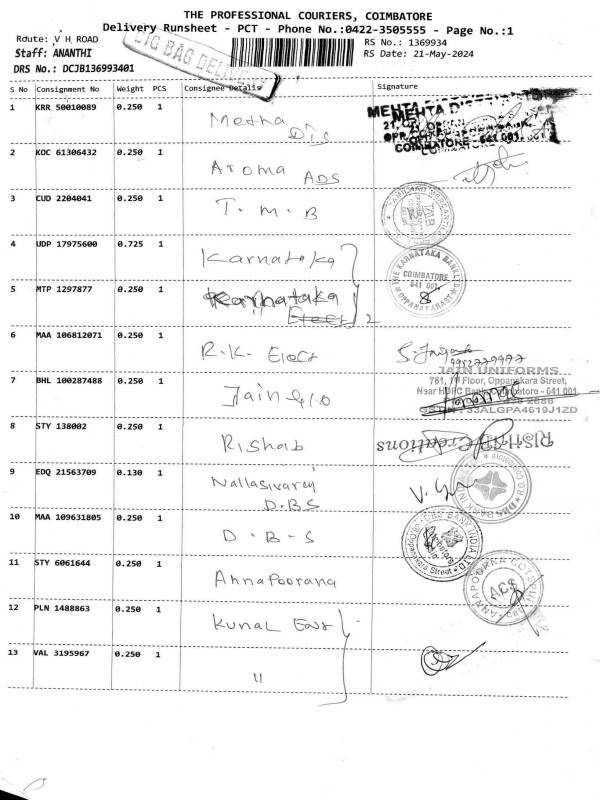 THE PROFESSIONAL COURIERS, COIMBATORE
Delivery Runsheet - PCT - Phone No.:0422-3505555 - Page No.:1
Route: V H ROAD
RS No.: 1369934
Staff: ANANTHI
RS Date: 21-May-2024
DRS No.: DCJB136993401
BIG BAG DELIVERY
S No Consignment No Weight PCS Consignee Details Signature
1 KRR 50010089 0.250 1 Metha Dis
MEHTA
COIMBATORE - 641 001.
2 KOC 61306432 0.250 1 Aroma ADS
3 CUD 2204041 0.250 1 T. M. B
4 UDP 17975600 0.725 1 Karnataka
THE KARNATAKA BANK LTD
COIMBATORE
641 001.
5 MTP 1297877 0.250 1 Karnataka
2
6 MAA 106812071 0.250 1 R.K. Elecr
7 BHL 100287488 0.250 1 Jain
JAIN UNIFORMS
761, 1st Floor, Oppanakara Street,
Near HDFC Bank, Coimbatore - 641 001
GSTIN : 33ALGPA4619J1ZD
8 STY 138002 0.250 1 Rishab
RISHAB Creations
9 EDQ 21563709 0.130 1 Nallasivam
D.B.S
10 MAA 109631805 0.250 1 D. B. S
DBS BANK INDIA LTD
Oppanakara Street
11 STY 6061644 0.250 1 Annapoorana
ACS
12 PLN 1488863 0.250 1 Kunal
13 VAL 3195967 0.250 1 "